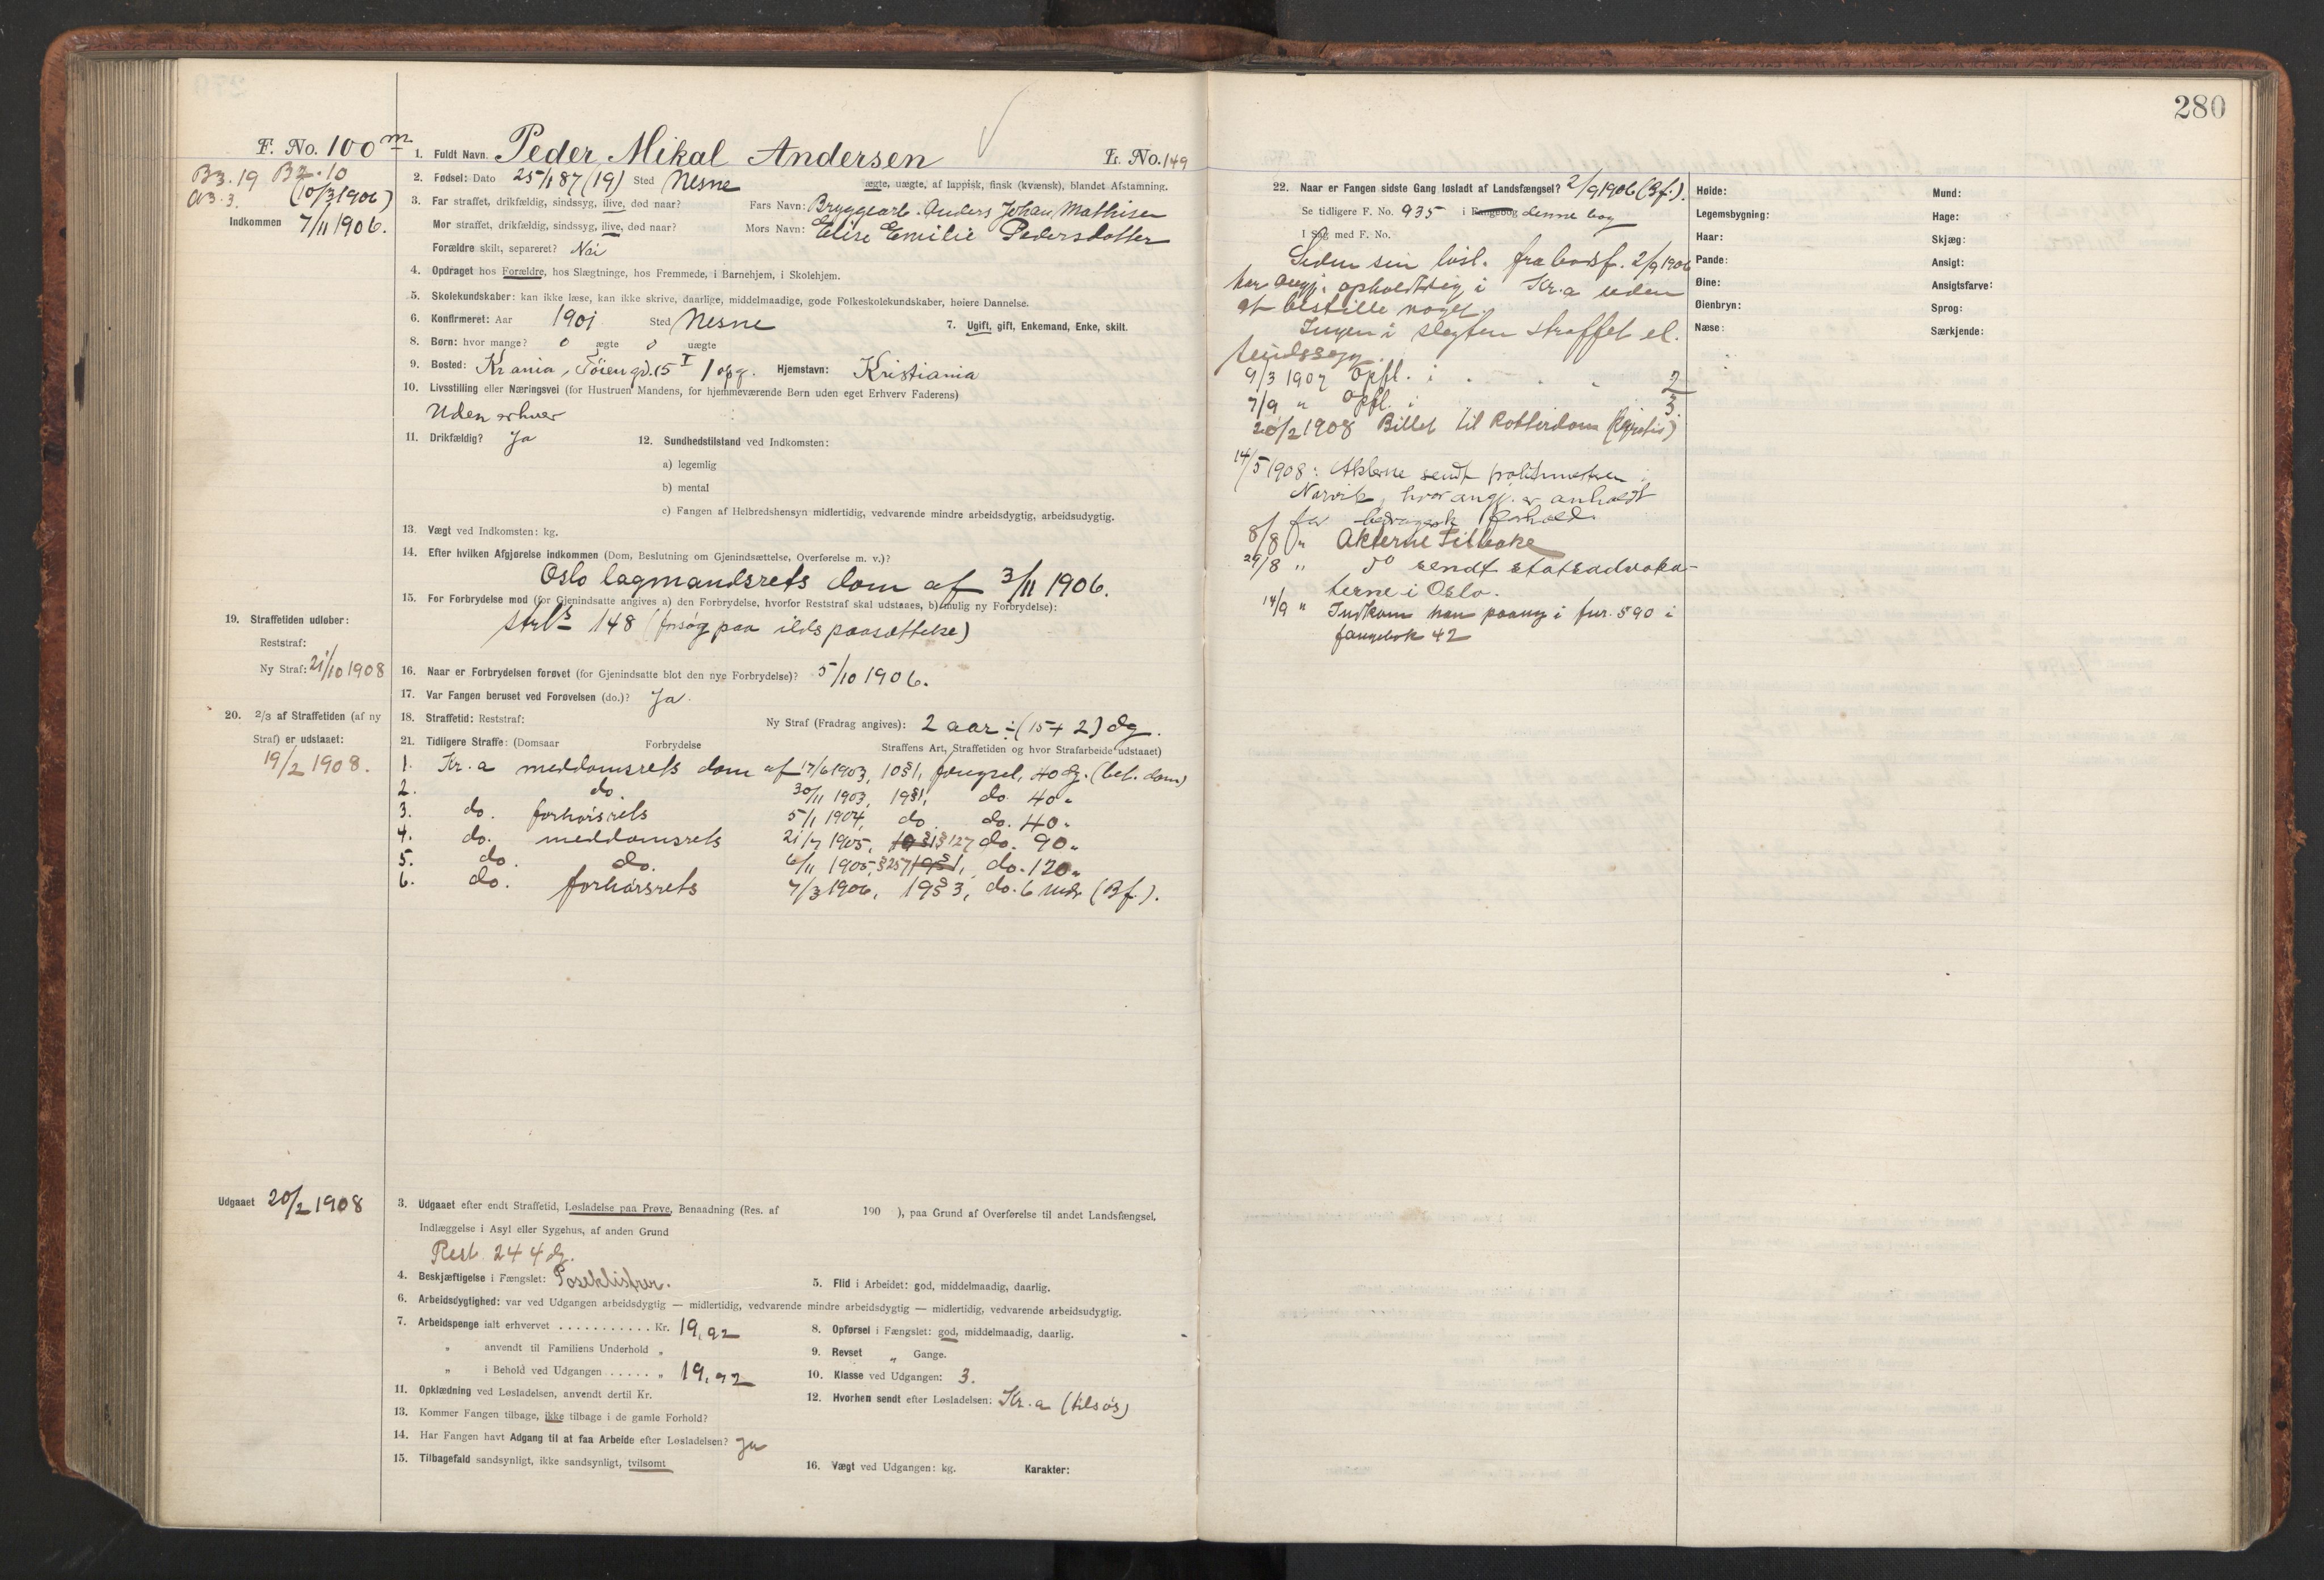 280
F. No. 100 m
B3. 19 B2. 10
(10/3 1906)
Indkommen 7/11 1906.
1. Fuldt Navn. Peder Mikal Andersen L. No. 149
2. Fødsel: Dato 25/1 87 (19) Sted Nesne ægte, uægte, af lappisk, finsk (kvænsk), blandet Afstamning.
3. Far straffet, drikfældig, sindssyg, ilive, død naar? Fars Navn: Bryggearb. Anders Johan Mathisen
Mor straffet, drikfældig, sindssyg, ilive, død naar? Mors Navn: Elise Emilie Pedersdatter
Forældre skilt, separeret? Nei
4. Opdraget hos Forældre, hos Slægtninge, hos Fremmede, i Barnehjem, i Skolehjem.
5. Skolekundskaber: kan ikke læse, kan ikke skrive, daarlige, middelmaadige, gode Folkeskolekundskaber, høiere Dannelse.
6. Konfirmeret: Aar 1901 Sted Nesne 7. Ugift, gift, Enkemand, Enke, skilt.
8. Børn: hvor mange? 0 ægte 0 uægte
9. Bosted: Krania, Töiengd. 15 I 1 opg. Hjemstavn: Kristiania
10. Livsstilling eller Næringsvei (for Hustruen Mandens, for hjemmeværende Børn uden eget Erhverv Faderens)
Uden erhver
11. Drikfældig? Ja 12. Sundhedstilstand ved Indkomsten:
a) legemlig
b) mental
c) Fangen af Helbredshensyn midlertidig, vedvarende mindre arbeidsdygtig, arbeidsudygtig.
13. Vægt ved Indkomsten: kg.
14. Efter hvilken Afgjørelse indkommen (Dom, Beslutning om Gjenindsættelse, Overførelse m. v.)?
Oslo lagmandsrets dom af 3/11 1906.
15. For Forbrydelse mod (for Gjenindsatte angives a) den Forbrydelse, hvorfor Reststraf skal udstaaes, b) mulig ny Forbrydelse):
strls 148 (forsøg paa ildspaasættelse)
19. Straffetiden udløber:
Reststraf:
Ny Straf: 21/10 1908
16. Naar er Forbrydelsen forøvet (for Gjenindsatte blot den nye Forbrydelse)? 5/10 1906.
17. Var Fangen beruset ved Forøvelsen (do.)? Ja.
20. 2/3 af Straffetiden (af ny
Straf) er udstaaet:
19/2 1908.
18. Straffetid: Reststraf: Ny Straf (Fradrag angives): 2 aar ÷ (15 + 2) dg.
21. Tidligere Straffe: (Domsaar Forbrydelse Straffens Art, Straffetiden og hvor Strafarbeide udstaaet)
1. Kr.a meddomsrets dom af 17/6 1903, 10 § 1, fængsel, 40 dg. (bet. dom)
2. do. 30/11 1903, 19 § 1, do. 40 "
3. do. forhørsrets 5/1 1904, do. do. 40 "
4. do. meddomsrets 21/7 1905, 10 § 1 § 127 do. 90 "
5. do. do. 6/11 1905, § 257 19 § 1, do. 120 "
6. do. forhørsrets 7/3 1906, 19 § 3, do. 6 mdr (Bf.).
Udgaaet 20/2 1908
3. Udgaaet efter endt Straffetid, Løsladelse paa Prøve, Benaadning (Res. af 190 ), paa Grund af Overførelse til andet Landsfængsel,
Indlæggelse i Asyl eller Sygehus, af anden Grund
Rest 244 dg.
4. Beskjæftigelse i Fængslet: Poseklistrer. 5. Flid i Arbeidet: god, middelmaadig, daarlig.
6. Arbeidsdygtighed: var ved Udgangen arbeidsdygtig — midlertidig, vedvarende mindre arbeidsdygtig — midlertidig, vedvarende arbeidsudygtig.
7. Arbeidspenge ialt erhvervet . . . . . . . . . . . Kr. 19,92 8. Opførsel i Fængslet: god, middelmaadig, daarlig.
" anvendt til Familiens Underhold " 9. Revset " Gange.
" i Behold ved Udgangen . . . . . " 19,92 10. Klasse ved Udgangen: 3.
11. Opklædning ved Løsladelsen, anvendt dertil Kr. 12. Hvorhen sendt efter Løsladelsen: Kr.a (tilsøs)
13. Kommer Fangen tilbage, ikke tilbage i de gamle Forhold?
14. Har Fangen havt Adgang til at faa Arbeide efter Løsladelsen? Ja
15. Tilbagefald sandsynligt, ikke sandsynligt, tvilsomt 16. Vægt ved Udgangen: kg. Karakter:
22. Naar er Fangen sidste Gang løsladt af Landsfængsel? 2/9 1906 (Bf.).
Se tidligere F. No. 935 i Fangebog denne bog
I Sag med F. No.
Siden sin løsl. fra bodsf. 2/9 1906
har angj. opholdt sig i Kr.a uden
at bestille noget.
Ingen i slegten straffet el.
sindssyg.
9/3 1907 Opfl. i . . . 2
7/9 " Opfl. i 3.
20/2 1908 Billet til Rotterdam (gratis)
14/5 1908: Akterne sendt politimesteren i
Narvik, hvor angj. er anholdt
for bedragersk forhold.
8/8 " Akterne tilbake
29/8 " do sendt statsadvoka-
terne i Oslo.
14/9 " Indkom han paany i fnr. 590 i
fangebok 42
Høide: Mund:
Legemsbygning: Hage:
Haar: Skjæg:
Pande: Ansigt:
Øine: Ansigtsfarve:
Øienbryn: Sprog:
Næse: Særkjende: